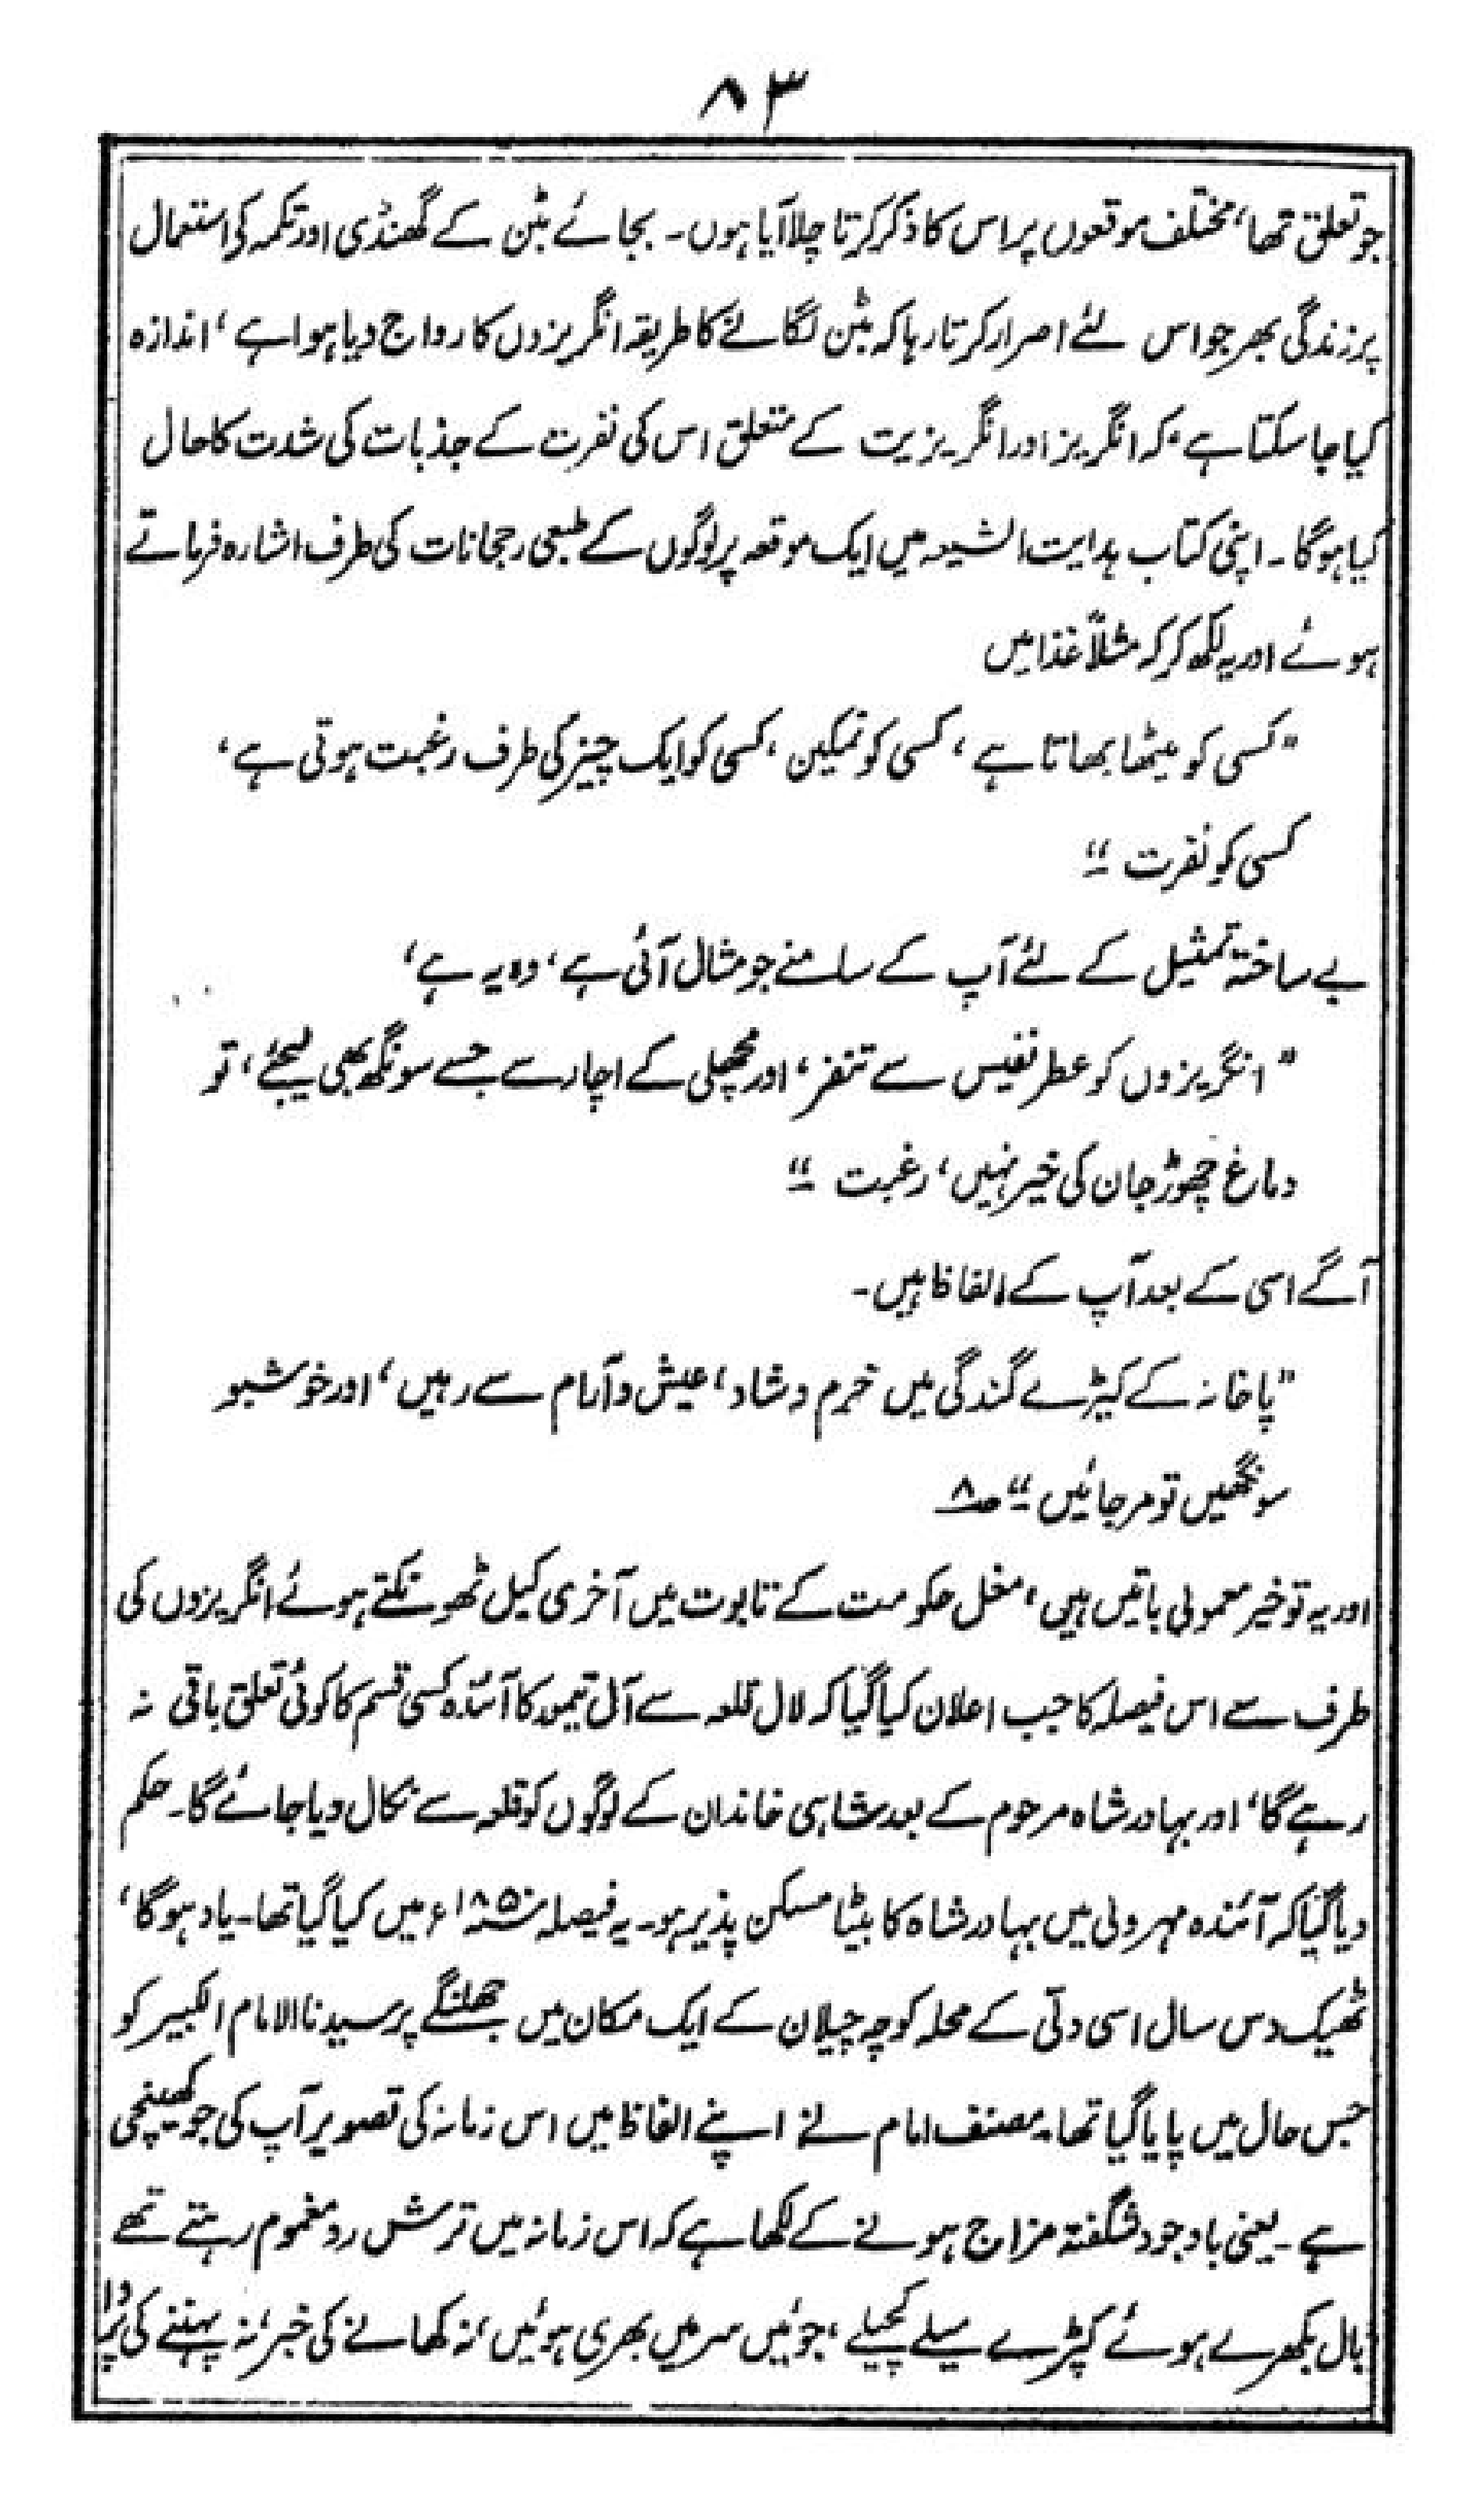 ۸۳
جو تعلق تھا، مختلف موقعوں پر اس کا ذکر کرتا چلا آیا ہوں۔ بجائے بٹن کے گھنڈی اور تکمہ کی استعمال
پر زندگی بھر جو اس لئے اصرار کرتا رہا کہ بٹن لگانے کا طریقہ انگریزوں کا رواج دیا ہوا ہے، اندازہ
کیا جا سکتا ہے، کہ انگریز اور انگریزیت کے متعلق اس کی نفرت کے جذبات کی شدت کا حال
کیا ہوگا۔ اپنی کتاب ہدایت الشیعہ میں ایک موقعہ پر لوگوں کے طبعی رجحانات کی طرف اشارہ فرماتے
ہوئے اور یہ لکھ کر کہ مثلاً غذا میں
"کسی کو میٹھا بھاتا ہے، کسی کو نمکین، کسی کو ایک چیز کی طرف رغبت ہوتی ہے،
کسی کو نفرت۔"
بے ساختہ تمثیل کے لئے آپ کے سامنے جو مثال آئی ہے، وہ یہ ہے،
"انگریزوں کو عطر نفیس سے تنفر، اور مچھلی کے اچار سے جسے سونگھ بھی لیجئے، تو
دماغ چھوڑ جان کی خیر نہیں، رغبت۔"
آگے اسی کے بعد آپ کے الفاظ ہیں۔
"پاخانہ کے کیڑے گندگی میں خرم و شاد، عیش و آرام سے رہیں، اور خوشبو
سونگھیں تو مر جائیں۔" ص۸
اور یہ تو خیر معمولی باتیں ہیں، مغل حکومت کے تابوت میں آخری کیل ٹھونکتے ہوئے انگریزوں کی
طرف سے اس فیصلہ کا جب اعلان کیا گیا کہ لال قلعہ سے آل تیمور کا آئندہ کسی قسم کا کوئی تعلق باقی نہ
رہے گا، اور بہادر شاہ مرحوم کے بعد شاہی خاندان کے لوگوں کو قلعہ سے نکال دیا جائے گا۔ حکم
دیا گیا کہ آئندہ مہرولی میں بہادر شاہ کا بیٹا مسکن پذیر ہو۔ یہ فیصلہ ۱۸۵۰ء میں کیا گیا تھا۔ یاد ہوگا،
ٹھیک دس سال اسی دلّی کے محلہ کوچہ چیلان کے ایک مکان میں جھلنگے پر سیدنا الامام الکبیر کو
جس حال میں پایا گیا تھا۔ مصنف امام نے اپنے الفاظ میں اس زمانہ کی تصویر آپ کی جو کھینچی
ہے۔ یعنی باوجود شگفتہ مزاج ہونے کے لکھا ہے کہ اس زمانہ میں ترش رو مغموم رہتے تھے
بال بکھرے ہوئے کپڑے میلے کچیلے، جوئیں سر میں بھری ہوئیں، نہ کھانے کی خبر، نہ پہننے کی پروا